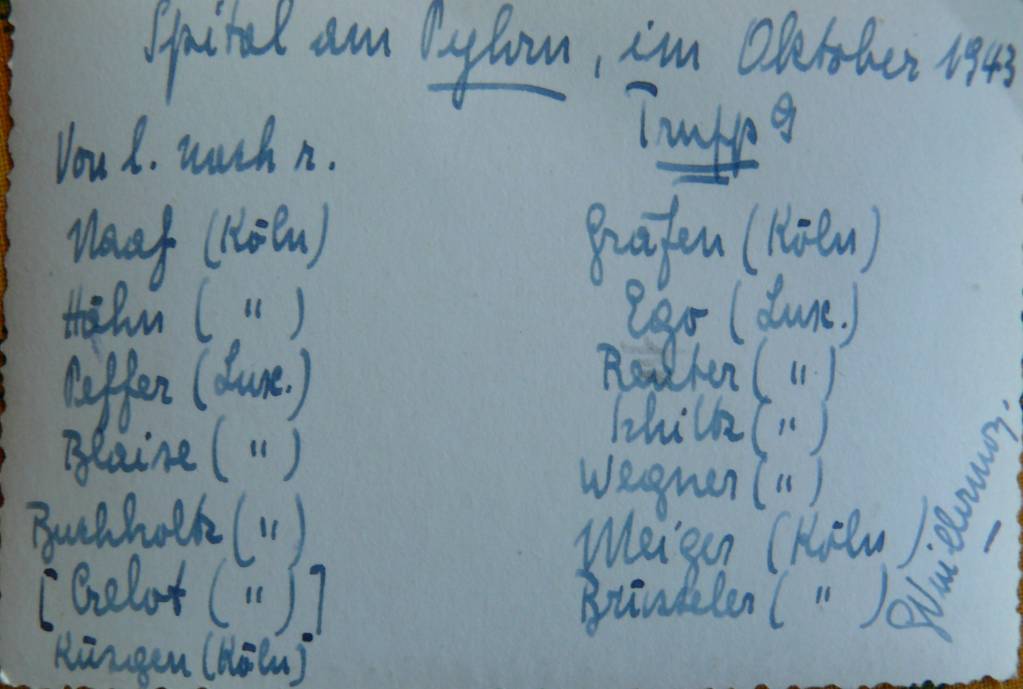 Spital am Pyhrn, im Oktober 1943
Trupp 9
Von l. nach r.
Naaf (Köln)
Höhn ( " )
Peffer (Lux.)
Blaise ( " )
Buchholtz ( " )
[ Crelot ( " ) ]
Küsgen (Köln)
Gräfen (Köln)
Ego (Lux.)
Reuter ( " )
Schiltz ( " )
Wegner ( " )
Meiger (Köln)
Brüsseler ( " )